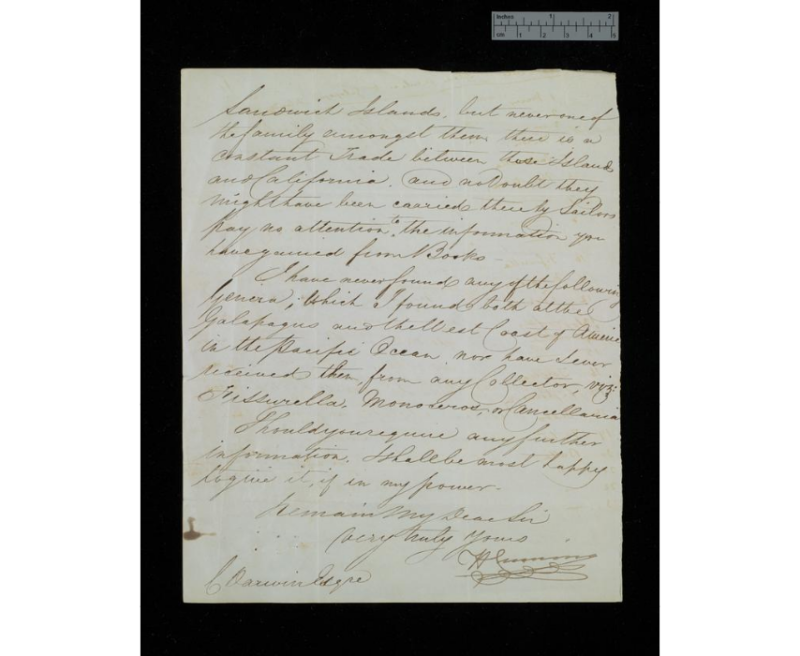 Inches 1 2
cm 1 2 3 4 5
Sandwich Islands. but never one of
the family amongst them there is a
constant Trade between those Islands
and California. and no doubt they
might have been carried there by Sailors
pay no attention to the information you
have gained from Books
I have never found any of the following
Genera, which I found both at the
Galapagus and the West Coast of America
in the Pacific Ocean, nor have I ever
received them from any Collector, viz
Fissurella, Monoceros, or Cancellaria
Should you require any further
information. I shall be most happy
to give it, if in my power.
Remain My Dear Sir
Very truly Yours
H Cuming
C Darwin Esqre